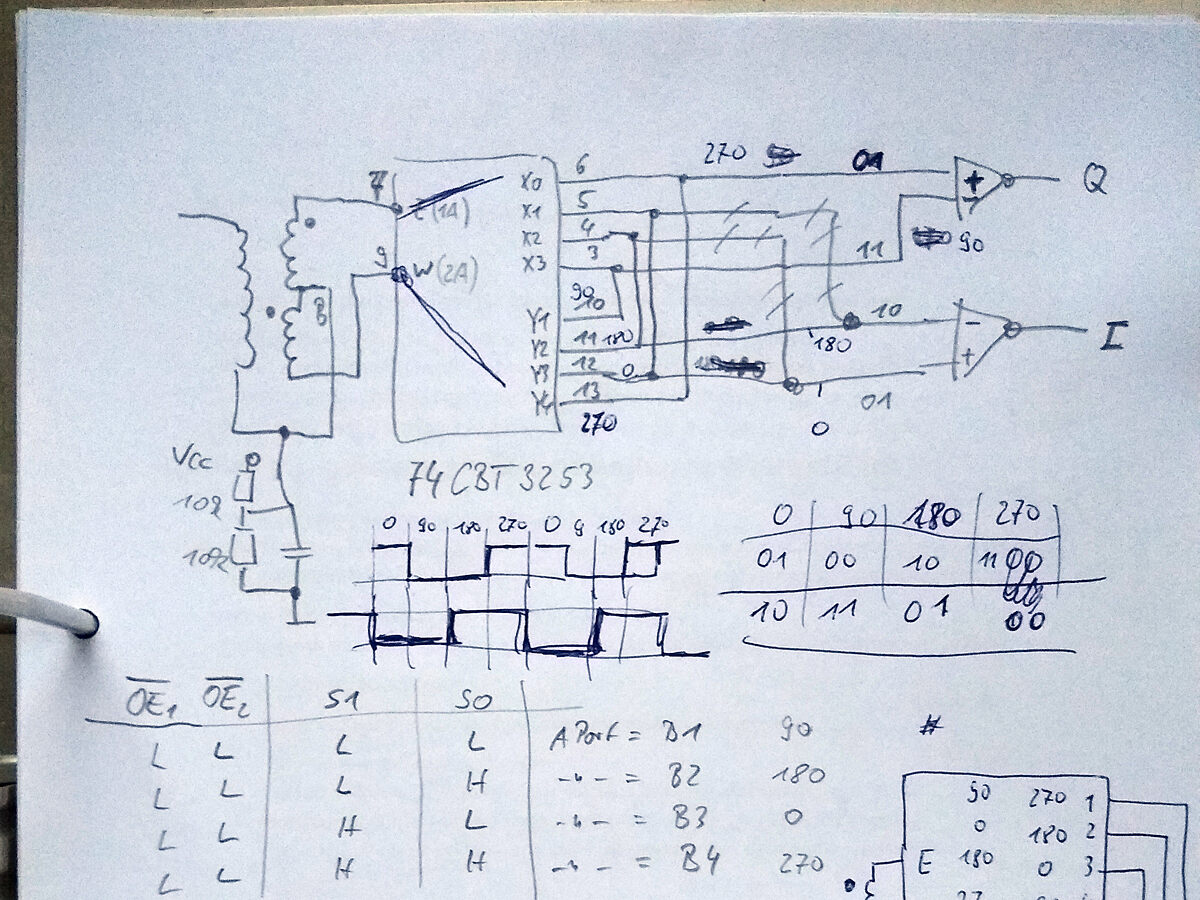 270 01
6
7 X0 + Q
(1A) X1 5
X2 4
9 W(2A) X3 3 11 90
90
10
Y1 10 -
8 Y2 11 180 180 I
Y3 12 0 +
Y4 13 01
270 0
Vcc 74CBT3253
10k
10k
0 90 180 270 0 9 180 270
0 90 180 270
01 00 10 11
10 11 01 00
OE1 OE2 S1 S0
L L L L A Port = B1 90 #
L L L H -"- = B2 180
L L H L -"- = B3 0
L L H H -"- = B4 270
90 270 1
0 180 2
E 180 0 3
27